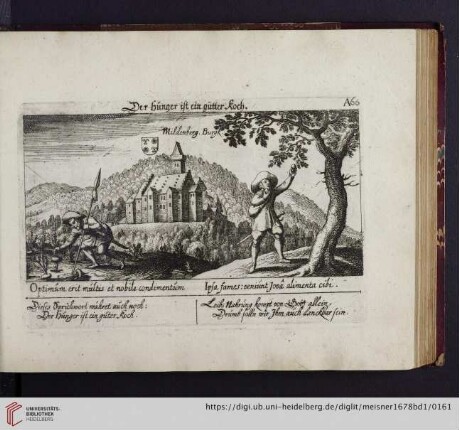 Der hünger ist ein gütter Koch.
A66
Mildenberg. Burgk
Optimum erit multis et nobile condementum
Ipsa fames: venient Jonâ alimenta cibi.
Dieses Sprichwort wehret auch noch:
Der Hünger ist ein güter Koch.
Leibs Nahrüng kompt von Gott allein,
Drümb solln wir Ihm auch danckbar sein.
UNIVERSITÄTS-
BIBLIOTHEK
HEIDELBERG
https://digi.ub.uni-heidelberg.de/diglit/meisner1678bd1/0161